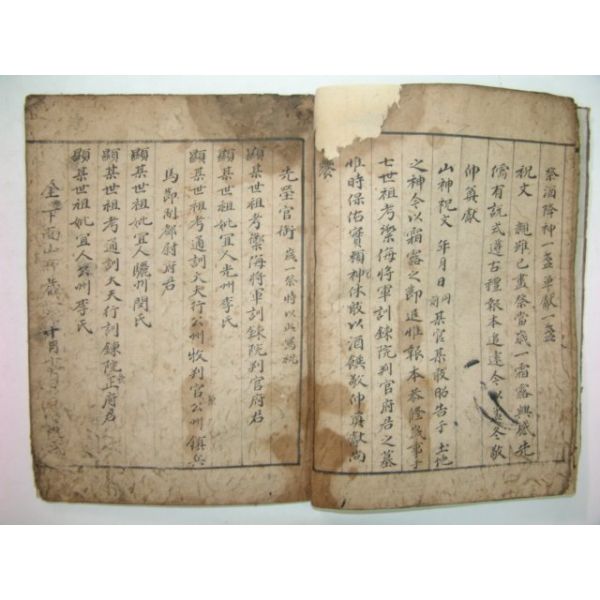 祭酒降神一盞单献一盞
祝文 親雖已盡祭當歲一霜露興感先
儒有說式遵古禮報本追遠今以孟冬敬
伸奠献
山神祝文 年月日 前某官某敢昭告于 土地
之神今以霜露之節追惟報本恭修歲事于
七世祖考禦海將軍訓鍊院判官府君之墓
惟時保佑實頼神休敢以酒饌敬伸奠献尚
饗
先塋官啣 歲一祭時以此寫祝
顯某世祖考禦海將軍訓鍊院判官府君
顯某世祖妣宜人光州李氏
顯某世祖考通訓大夫行公州牧判官公州鎮兵
馬節制都尉府君
顯某世祖妣宜人驪州閔氏
顯某世祖考通訓大夫行訓鍊院正府君
顯某世祖妣宜人 州李氏
下 山 歲 十月